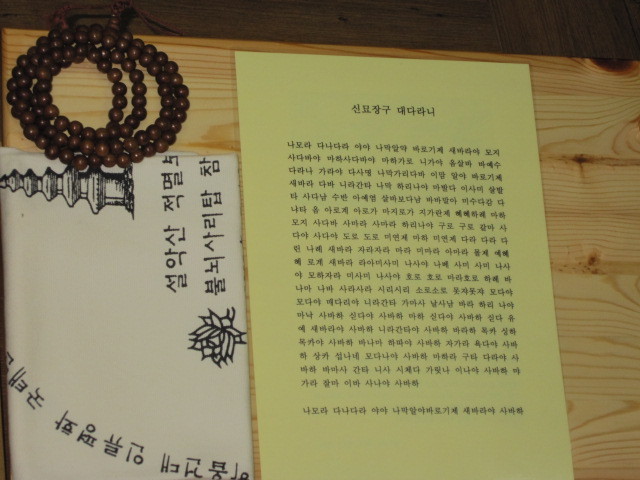 신묘장구 대다라니
나모라 다나다라 야야 나막알약 바로기제 새바라야 모지
사다바야 마하사다바야 마하가로 니가야 옴살바 바예수
다라나 가라야 다사명 나막가리다바 이맘 알야 바로기제
새바라 다바 니라간타 나막 하리나야 마발다 이사미 살발
타 사다남 수반 아예염 살바보다남 바바말아 미수다감 다
냐타 옴 아로계 아로가 마지로가 지가란제 혜혜하례 마하
모지 사다바 사마라 사마라 하리나야 구로 구로 갈마 사
다야 사다야 도로 도로 미연제 마하 미연제 다라 다라 다
린 나례 새바라 자라자라 마라 미마라 아마라 몰제 예혜
혜 로계 새바라 라아미사미 나사야 나베 사미 사미 나사
야 모하자라 미사미 나사야 호로 호로 마라호로 하례 바
나마 나바 사라사라 시리시리 소로소로 못쟈못쟈 모다야
모다야 매다리야 니라간타 가마사 날사남 바라 하리 나야
마낙 사바하 싣다야 사바하 마하 싣다야 사바하 싣다 유
예 새바라야 사바하 니라간타야 사바하 바라하 목카 싱하
목카야 사바하 바나마 하따야 사바하 자가라 욕다야 사바
하 상카 섭나네 모다나야 사바하 마하라 구타 다라야 사
바하 바마사 간타 니사 시체다 가릿나 이나야 사바하 먀
가라 잘마 이바 사나야 사바하
나모라 다나다라 야야 나막알야바로기제 새바라야 사바하
설악산 적멸보
불뇌사리탑 참
인류평화 국태